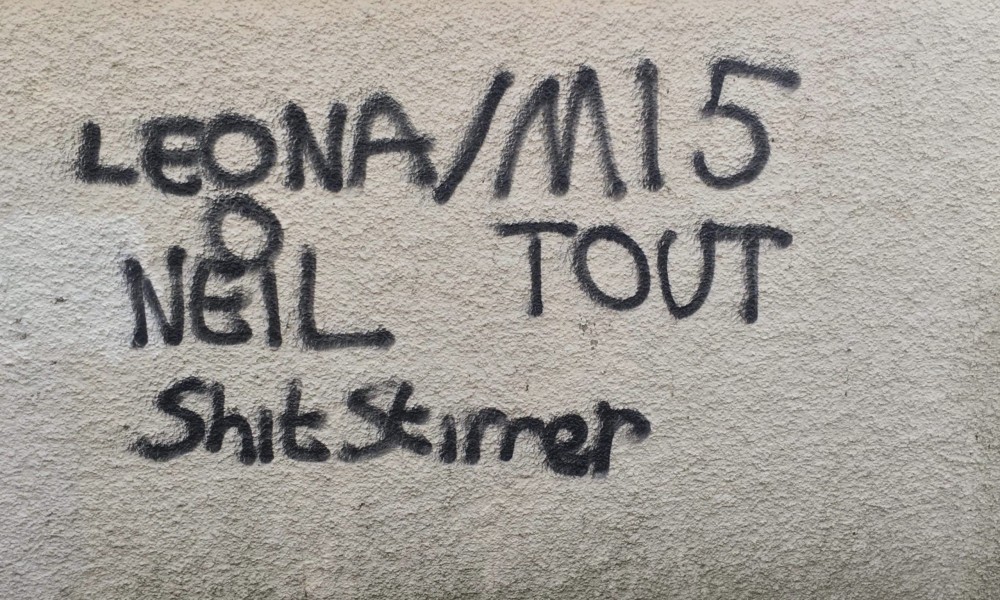 LEONA/MI5
O NEIL TOUT
Shit Stirrer